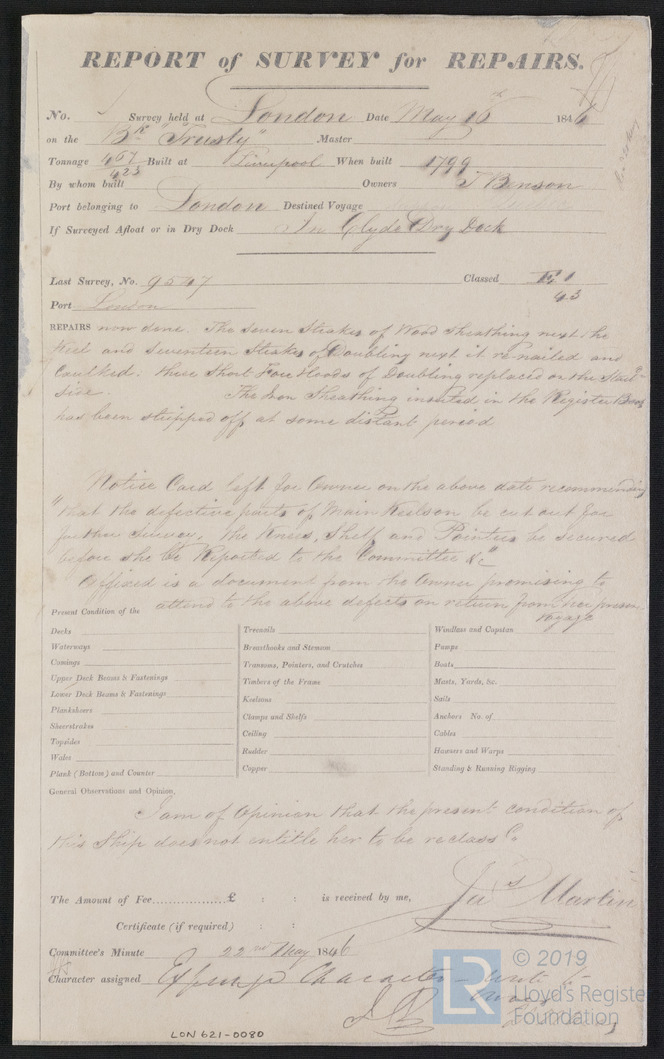 REPORT of SURVEY for REPAIRS.
No. Survey held at London Date May 16th 1846
on the Bk "Trusty" Master
Tonnage 467 Built at Liverpool When built 1799
423
By whom built Owners T Benson
Port belonging to London Destined Voyage
If Surveyed Afloat or in Dry Dock In Clyde Dry Dock
Last Survey, No. 9547 Classed E 1
43
Port London
REPAIRS now done. The seven Strakes of Wood Sheathing next the
Keel and seventeen Strakes of Doubling next it renailed and
Caulked. three Short Fore Hoods of Doubling replaced on the Starbd
side. The Iron Sheathing inserted in the Register Book
has been stripped off at some distant period
Notice Card left for Owner on the above date recommending
"that the defective parts of Main Keelson be cut out for
further Survey. The Knees, Shelf and Pointers be secured
before she be Reported to the Committee &c"
Affixed is a document from the Owner promising to
attend to the above defects on return from her present
voyage
Present Condition of the
Decks
Waterways
Comings
Upper Deck Beams & Fastenings
Lower Deck Beams & Fastenings
Planksheers
Sheerstrakes
Topsides
Wales
Plank (Bottom) and Counter
Treenails
Breasthooks and Stemson
Transoms, Pointers, and Crutches
Timbers of the Frame
Keelsons
Clamps and Shelfs
Ceiling
Rudder
Copper
Windlass and Capstan
Pumps
Boats
Masts, Yards, &c.
Sails
Anchors No. of
Cables
Hawsers and Warps
Standing & Running Rigging
General Observations and Opinion,
I am of Opinion that the present condition of
this Ship does not entitle her to be reclassd.
The Amount of Fee...............£ : : is received by me,
Jas Martin
Certificate (if required) : :
Committee's Minute 22nd May 1846
Character assigned Expunge Character
LON 621-0080
LR
© 2019
Lloyd's Register
Foundation